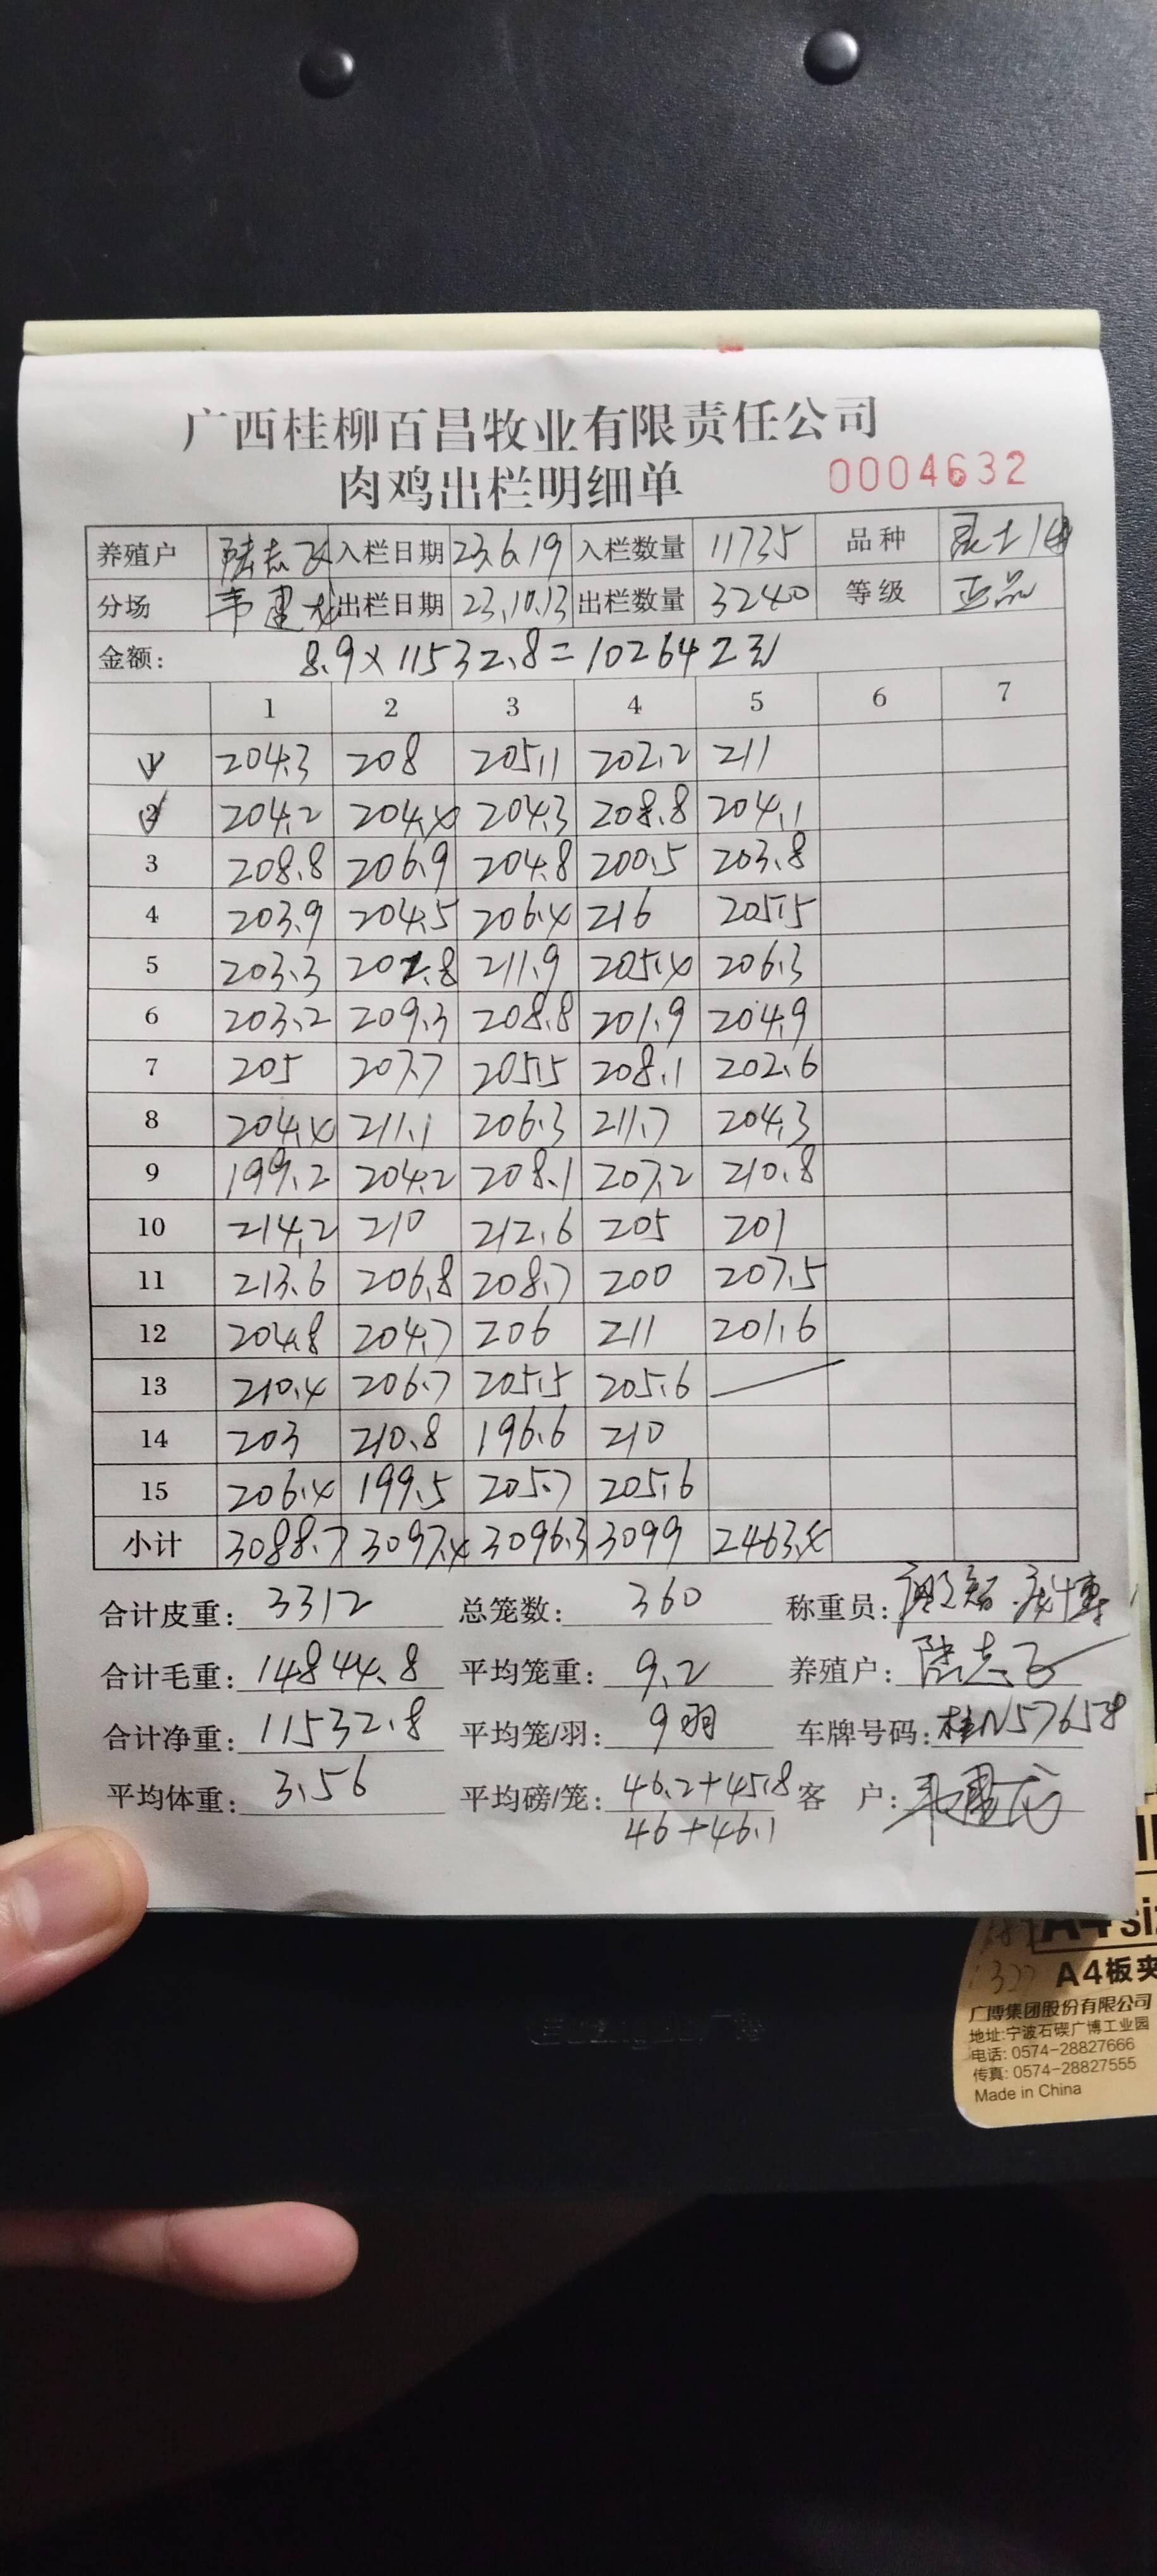 广西桂柳百昌牧业有限责任公司
肉鸡出栏明细单 0004632
养殖户 陆志飞 入栏日期 23.6.19 入栏数量 11735 品种
分场 韦建龙 出栏日期 23.10.13 出栏数量 3240 等级 正品
金额: 8.9×11532.8=102642元
1 2 3 4 5 6 7
1 204.3 208 205.1 202.2 211
2 204.2 204.4 204.3 208.8 204.1
3 208.8 206.9 204.8 200.5 203.8
4 203.9 204.5 206.4 216 205.5
5 203.3 202.8 211.9 205.4 206.3
6 203.2 209.3 208.8 201.9 204.9
7 205 207.7 205.5 208.1 202.6
8 204.4 211.1 206.3 211.7 204.3
9 199.2 204.2 208.1 207.2 210.8
10 214.2 210 212.6 205 201
11 213.6 206.8 208.7 200 207.5
12 204.8 204.7 206 211 201.6
13 210.4 206.7 205.5 205.6
14 203 210.8 196.6 210
15 206.4 199.5 205.7 205.6
小计 3088.7 3097.4 3096.3 3099 2463.4
合计皮重: 3312 总笼数: 360 称重员:
合计毛重: 14844.8 平均笼重: 9.2 养殖户: 陆志飞
合计净重: 11532.8 平均笼/羽: 9羽 车牌号码: 桂N57658
平均体重: 3.56 平均磅/笼: 46.2+45.8 客 户: 韦建龙
46+46.1
A4 siz
A4板夹
广博集团股份有限公司
地址:宁波石碶广博工业园
电话: 0574-28827666
传真: 0574-28827555
Made in China